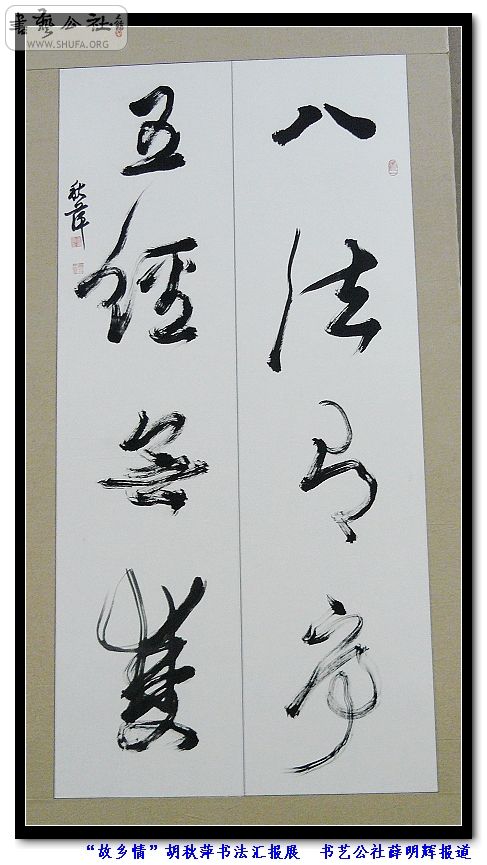 書藝公社
WWW.SHUFA.ORG
八法有
五經無雙
秋萍
“故乡情”胡秋萍书法汇报展　书艺公社薛明辉报道